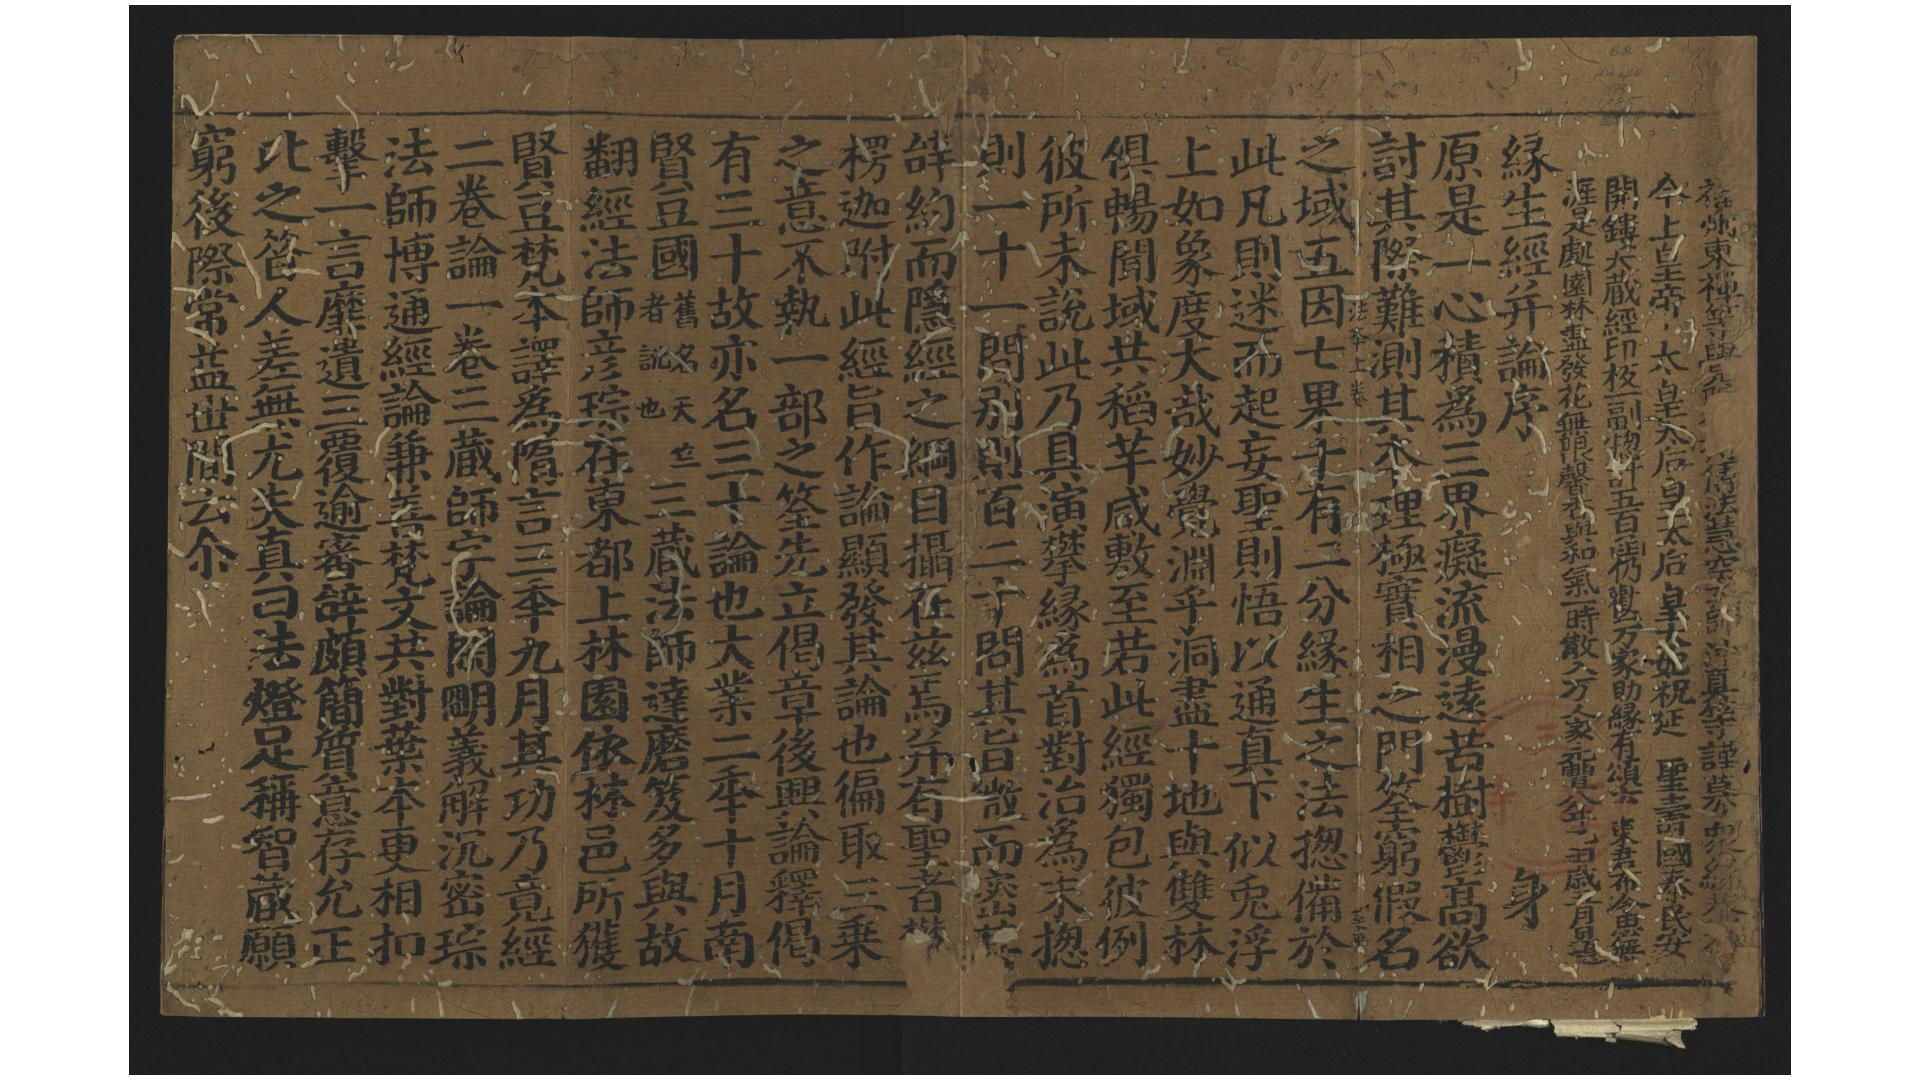 福州東禪等覺院住傳法慧空大師沖真等謹募衆緣恭爲
今上皇帝 太皇太后皇太后皇太妃祝延 聖壽國泰民安
開鏤大藏經印板一副揔計五百函仍勸万家助緣有頌云 東君布令思無
涯是處園林盡發花無限馨香與和氣一時散入万人家 元豐八年乙丑歲 月日題
緣生經并論序 身
原是一心積爲三界癡流漫遠苦樹欝高欲
討其際難測其本理極實相之門筌窮假名
之域五因七果十有二分緣生之法揔備於
此凡則迷而起妄聖則悟以通真下似兔浮
上如象度大哉妙覺淵乎洞盡十地與雙林
俱暢聞城共稻芉咸敷至若此經獨包彼例
彼所未說此乃具演攀緣爲首對治爲末揔
則一十一問別則百二十問其旨微而密其
辝約而隱經之綱目攝在茲焉并有聖者欝
楞迦附此經旨作論顯發其論也徧取三乘
之意不執一部之筌先立偈章後興論釋偈
有三十故亦名三十論也大業二年十月南
賢豆國舊名天竺者訛也三藏法師達磨笈多與故
翻經法師彦琮在東都上林園依林邑所獲
賢豆梵本譯爲隋言三年九月其功乃竟經
二卷論一卷三藏師字論閑明義解沉密琮
法師博通經論兼善梵文共對葉本更相扣
擊一言靡遺三覆逾審辝頗簡質意存允正
比之昔人差無尤失真曰法燈足稱智藏願
窮後際常益世間云尒